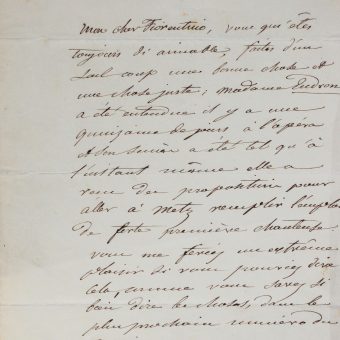 Mon cher Fiorentino, vous qui êtes
toujours si aimable, faites d'un
seul coup une bonne chose et
une chose juste; madame Eudron
a été entendue il y a une
quinzaine de jours à l'opéra
et son succès a été tel qu'à
l'instant même elle a
reçu des propositions pour
aller à Metz remplir l'emploi
de forte première chanteuse.
vous me ferez un extrême
plaisir si vous pouvez dire
cela, comme vous savez si
bien dire les choses, dans le
plus prochain numéro du